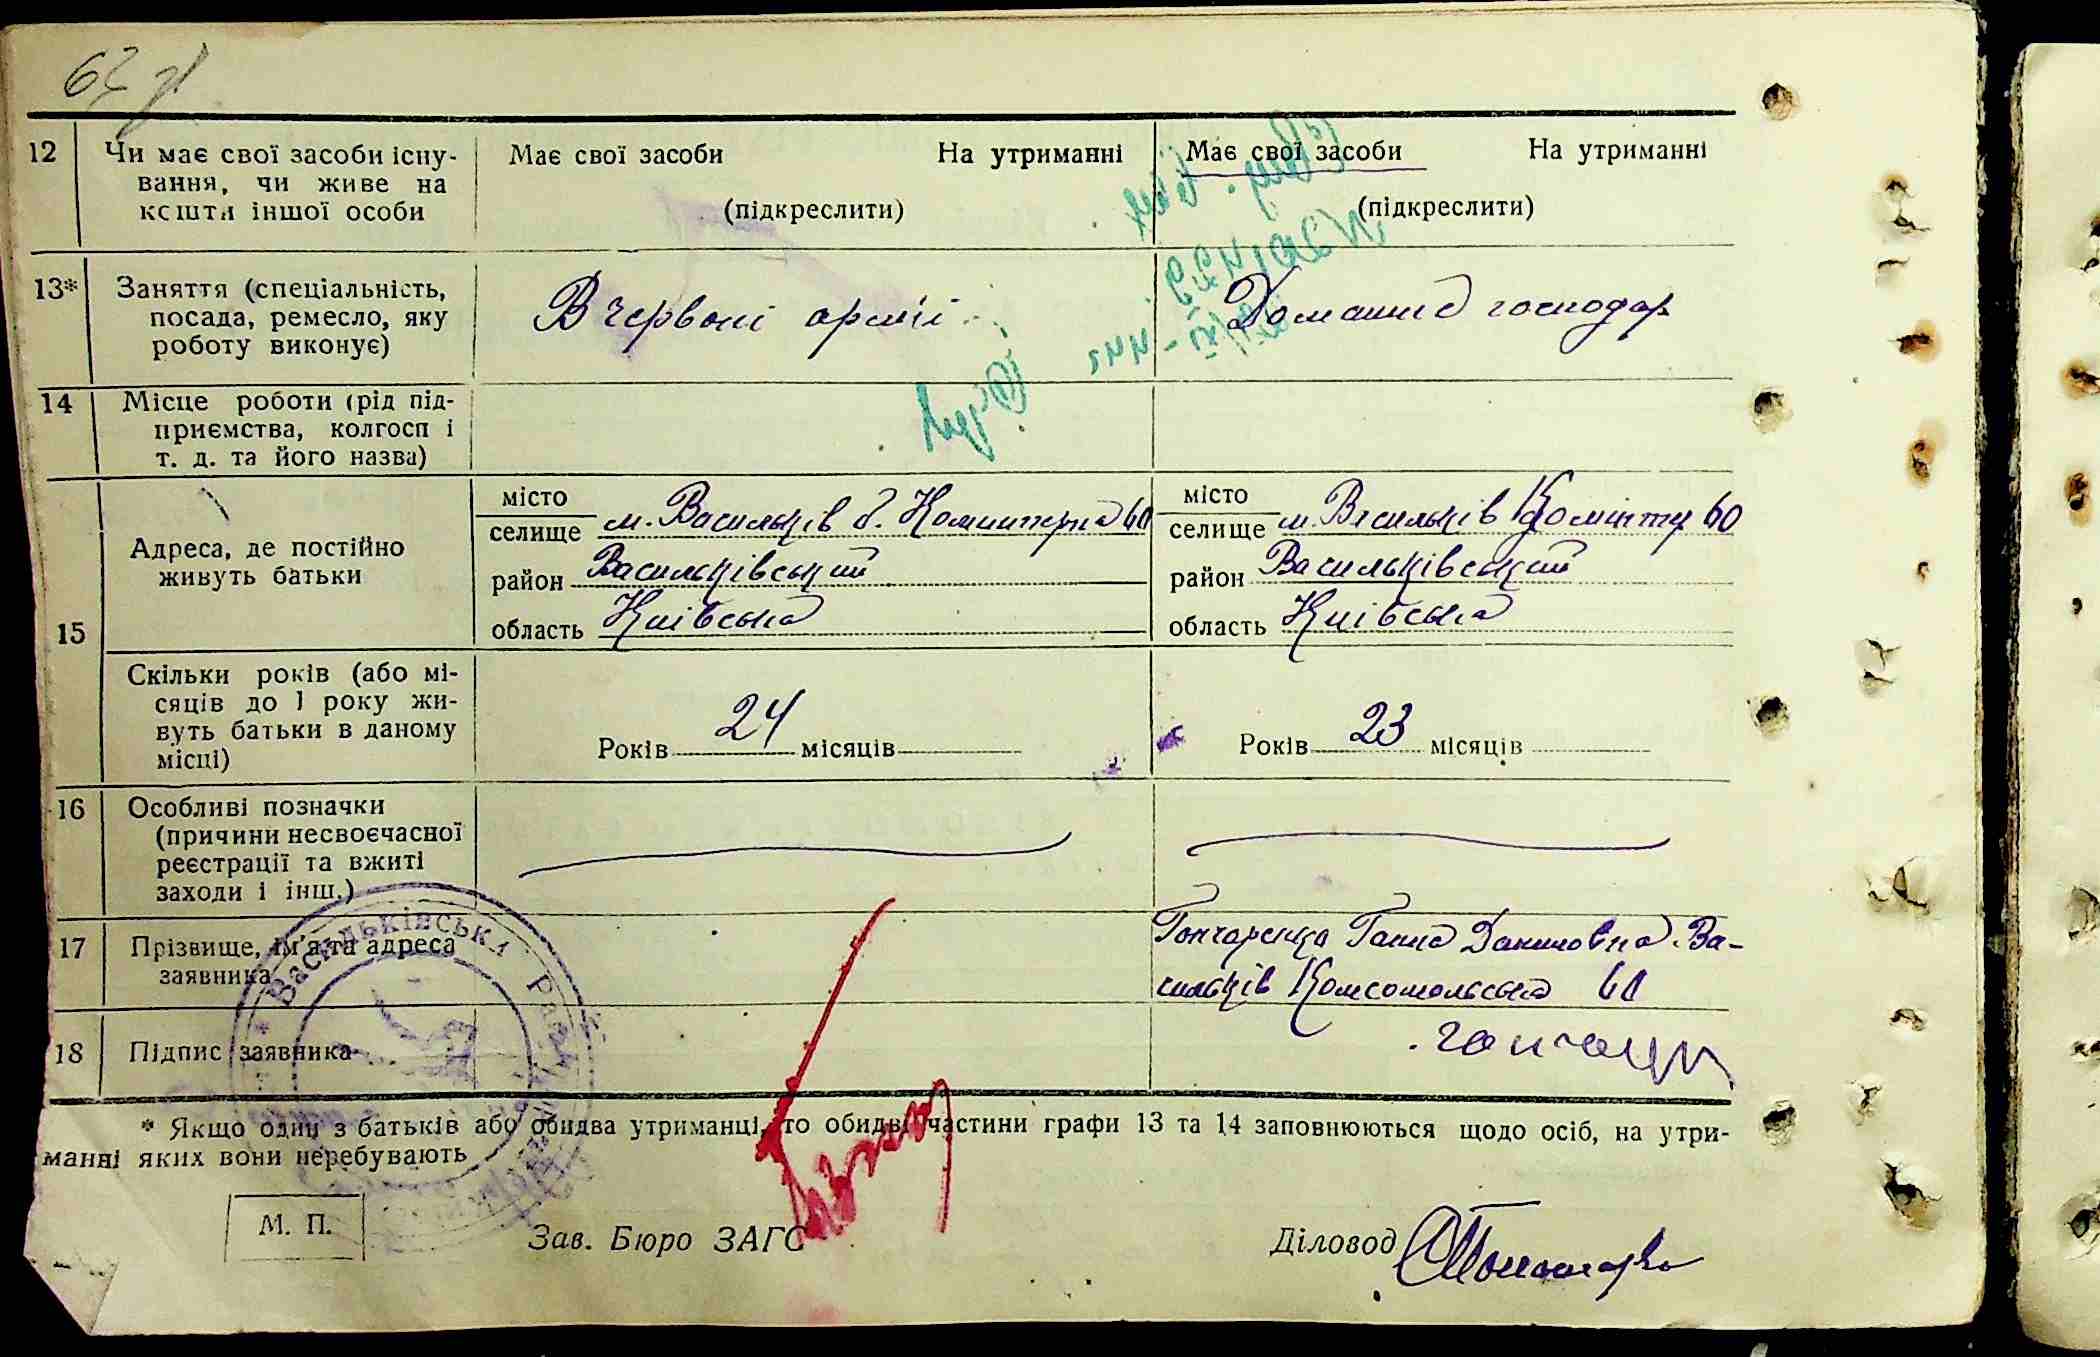 12 Чи має свої засоби існу-
вання, чи живе на
кошти іншої особи
Має свої засоби На утриманні
(підкреслити)
Має свої засоби На утриманні
(підкреслити)
13* Заняття (спеціальність,
посада, ремесло, яку
роботу виконує)
В червоні армії
Домашнє господар
14 Місце роботи (рід під-
приємства, колгосп і
т. д. та його назва)
15
Адреса, де постійно
живуть батьки
місто
селище м. Васильків б. Комінтерна 60
район Васильківський
область Київська
місто
селище м. Васильків Комінту 60
район Васильківський
область Київська
Скільки років (або мі-
сяців до 1 року жи-
вуть батьки в даному
місці)
Років 24 місяців
Років 23 місяців
16 Особливі позначки
(причини несвоєчасної
реєстрації та вжиті
заходи і інш.)
17 Прізвище, ім'я та адреса
заявника
Гончаренко Ганна Даниловна. Ва-
сильків Комсомольська 60
18 Підпис заявника
* Васильківська
* Якщо один з батьків або обидва утриманці, то обидві частини графи 13 та 14 заповнюються щодо осіб, на утри-
манні яких вони перебувають
М. П.
Зав. Бюро ЗАГС
Діловод